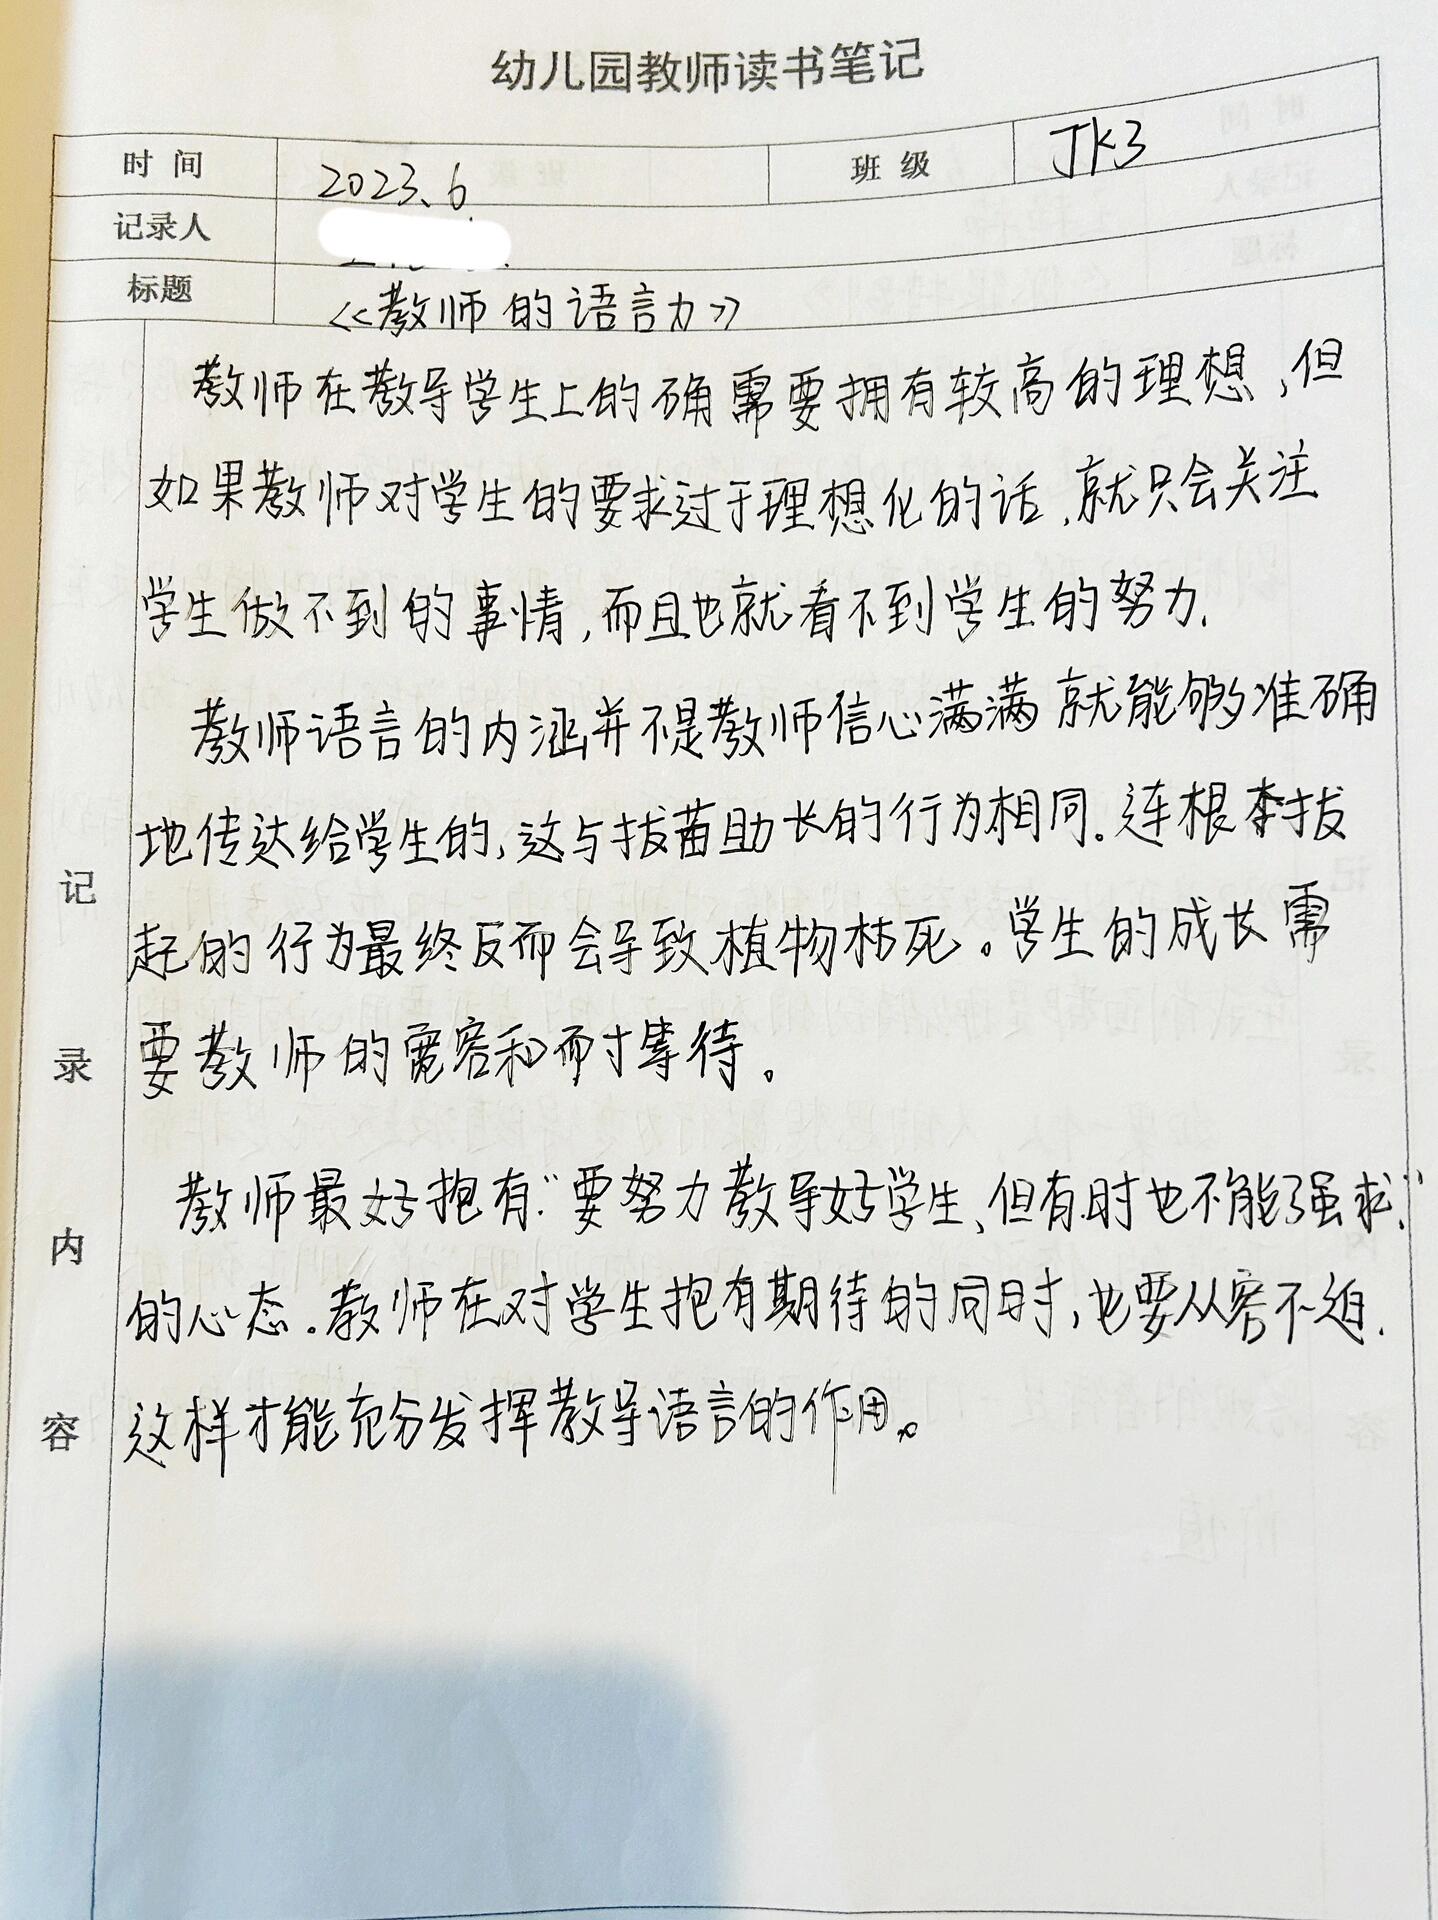 幼儿园教师读书笔记
时 间 2023、6 班 级 JK3
记录人
标题 《教师的语言力》
教师在教导学生上的确需要拥有较高的理想,但
如果教师对学生的要求过于理想化的话,就只会关注
学生做不到的事情,而且也就看不到学生的努力.
教师语言的内涵并不是教师信心满满就能够准确
地传达给学生的,这与拔苗助长的行为相同。连根拔
起的行为最终反而会导致植物枯死。学生的成长需
要教师的宽容和耐等待。
教师最好抱有“要努力教导好学生,但有时也不能强求.”
的心态.教师在对学生抱有期待的同时,也要从容不迫.
这样才能充分发挥教导语言的作用。
记
录
内
容